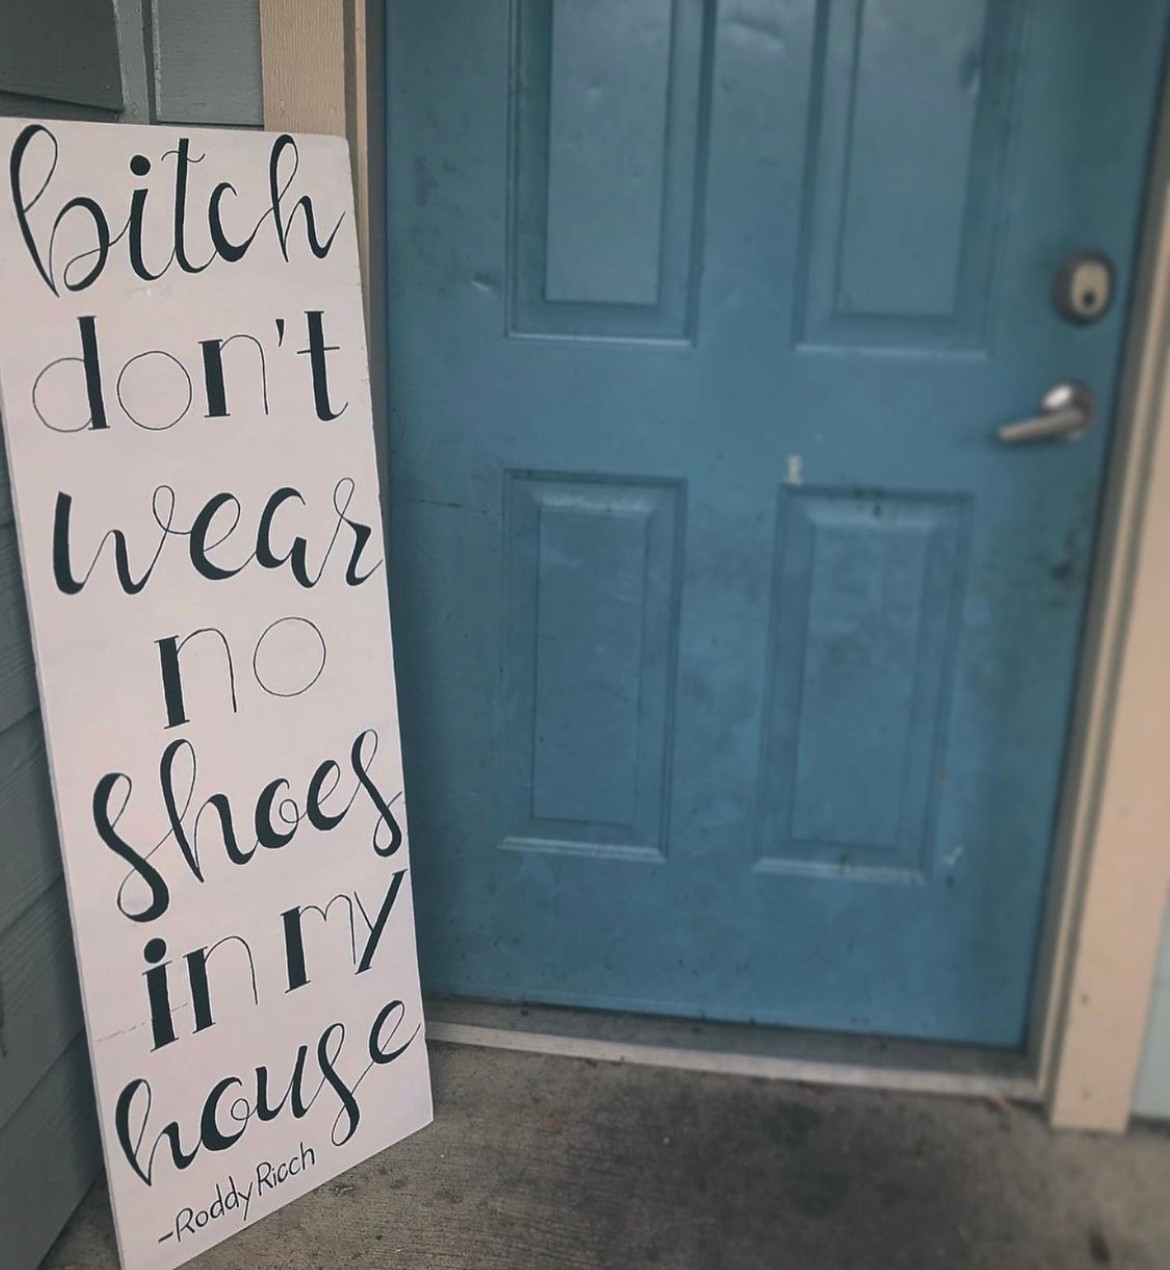 bitch
don't
wear
no
shoes
in my
house
-Roddy Ricch